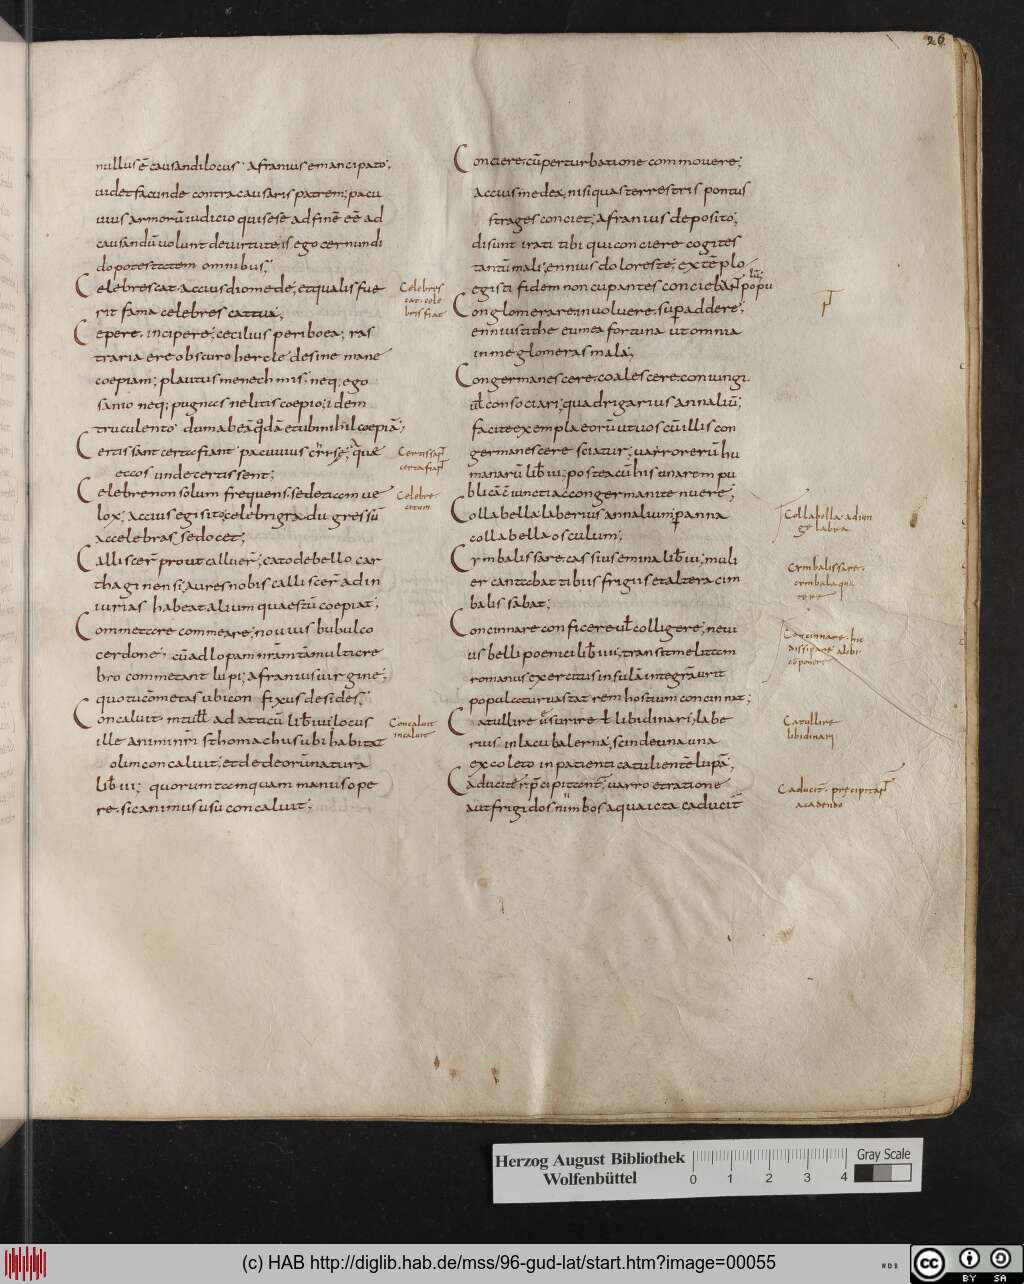 26
nullus ē causandi locus· afranius emancipato;
uidet facunde contra causaris patrem; pacu
uius armorū iudicio qui sese adfinē eē ad
causandū uolunt de uirtute; is ego cernundi
do potestatem omnibus;
Celebrescat· accius diomede; et qualis fue
rit fama celebres cat tua;
Cepere· incipere; cecilius periboea; ras
traria ere obscuro hercle desine mane
coepiam; plautus menechmis; neq; ego
sanio neq; pugnas nelitis coepio; idem
truculento
Certissant certa fiant pacuuius
ec cos unde certissent;
Celebre non solum frequens· sed etiam ue
lox; accius egisito celebri gradu gressū
accelebrasse docet;
Callisceř prout calluer̄; cato de bello car
thaginensi; aures nobis callisceř ad in
iurias habeat alium quaestū coepiat;
Commetare commeare; nouius bubulco
cerdone; cū ad lopam
bro commetant lupi; afranius uirgine;
quotucōmetas ubi con fixus desides;
Concaluit· m tuƚƚ ad atticū lib̄ uii locus
ille animi nr̄i sthomachus ubi habitat
olim concaluit; et de deorū natura
lib̄ iii; quorum tamquam manus ope
re· sic animus usu concaluit;
Celebres
cat· cele
bris fiat
Certissant
certa fiant
Celebre
citum
Concaluit
incaluit
Conciere· cū perturbatione commouere;
accius medea; nisi quas terrestris pontus
strages conciet; afranius deposito;
disunt irati tibi qui conciere cogites
tantū mali; ennius doloreste; extēplo
egisti fidem noncupantes conciebant popu
lū;
Conglomerare· inuoluere· sup addere;
ennius tithe eumea fortuna ut omnia
in me glomeras mala;
Congermanescere· coalescere· coniungi
uƚ consociari; quadrigarius annaliū;
facite exempla eorū ut uos cū illis con
germanescere sciatur; uarro rerū hu
manarū lib̄ iii; postea cū his unarem pu
blicā
Collabella· laberius annalium; panna
collabella osculum;
Crmbalissare· cassius emina lib̄ iii; muli
er cantabat tibiis frigiis et altera cim
balissabat;
Concinnare conficere uƚ colligere; neui
us belli poenici lib̄ iiii; transit melitam
romanus exercitus insulā integrā urit
populatur uastat rem hostium concinnat;
Catullire usurire ł libidinari; labe
rius in lacu balerna; scinde una una
excoleto inpatienti catulientē lupā;
Caducitēr p̄cipitant̄; uarro e ratione
aut frigidos nimbos aqua icta caduciť
Collabella· adiun
ge labra
Crmbalissare·
crmbala qua
tere
Concinnare· hic
dissipare alibi
cōponere
Catullire
libidinari
Caduciť· precipitanť
a cadendo
Herzog August Bibliothek
Wolfenbüttel
0 1 2 3 4
Gray Scale
(c) HAB http://diglib.hab.de/mss/96-gud-lat/start.htm?image=00055
WDB
cc BY SA